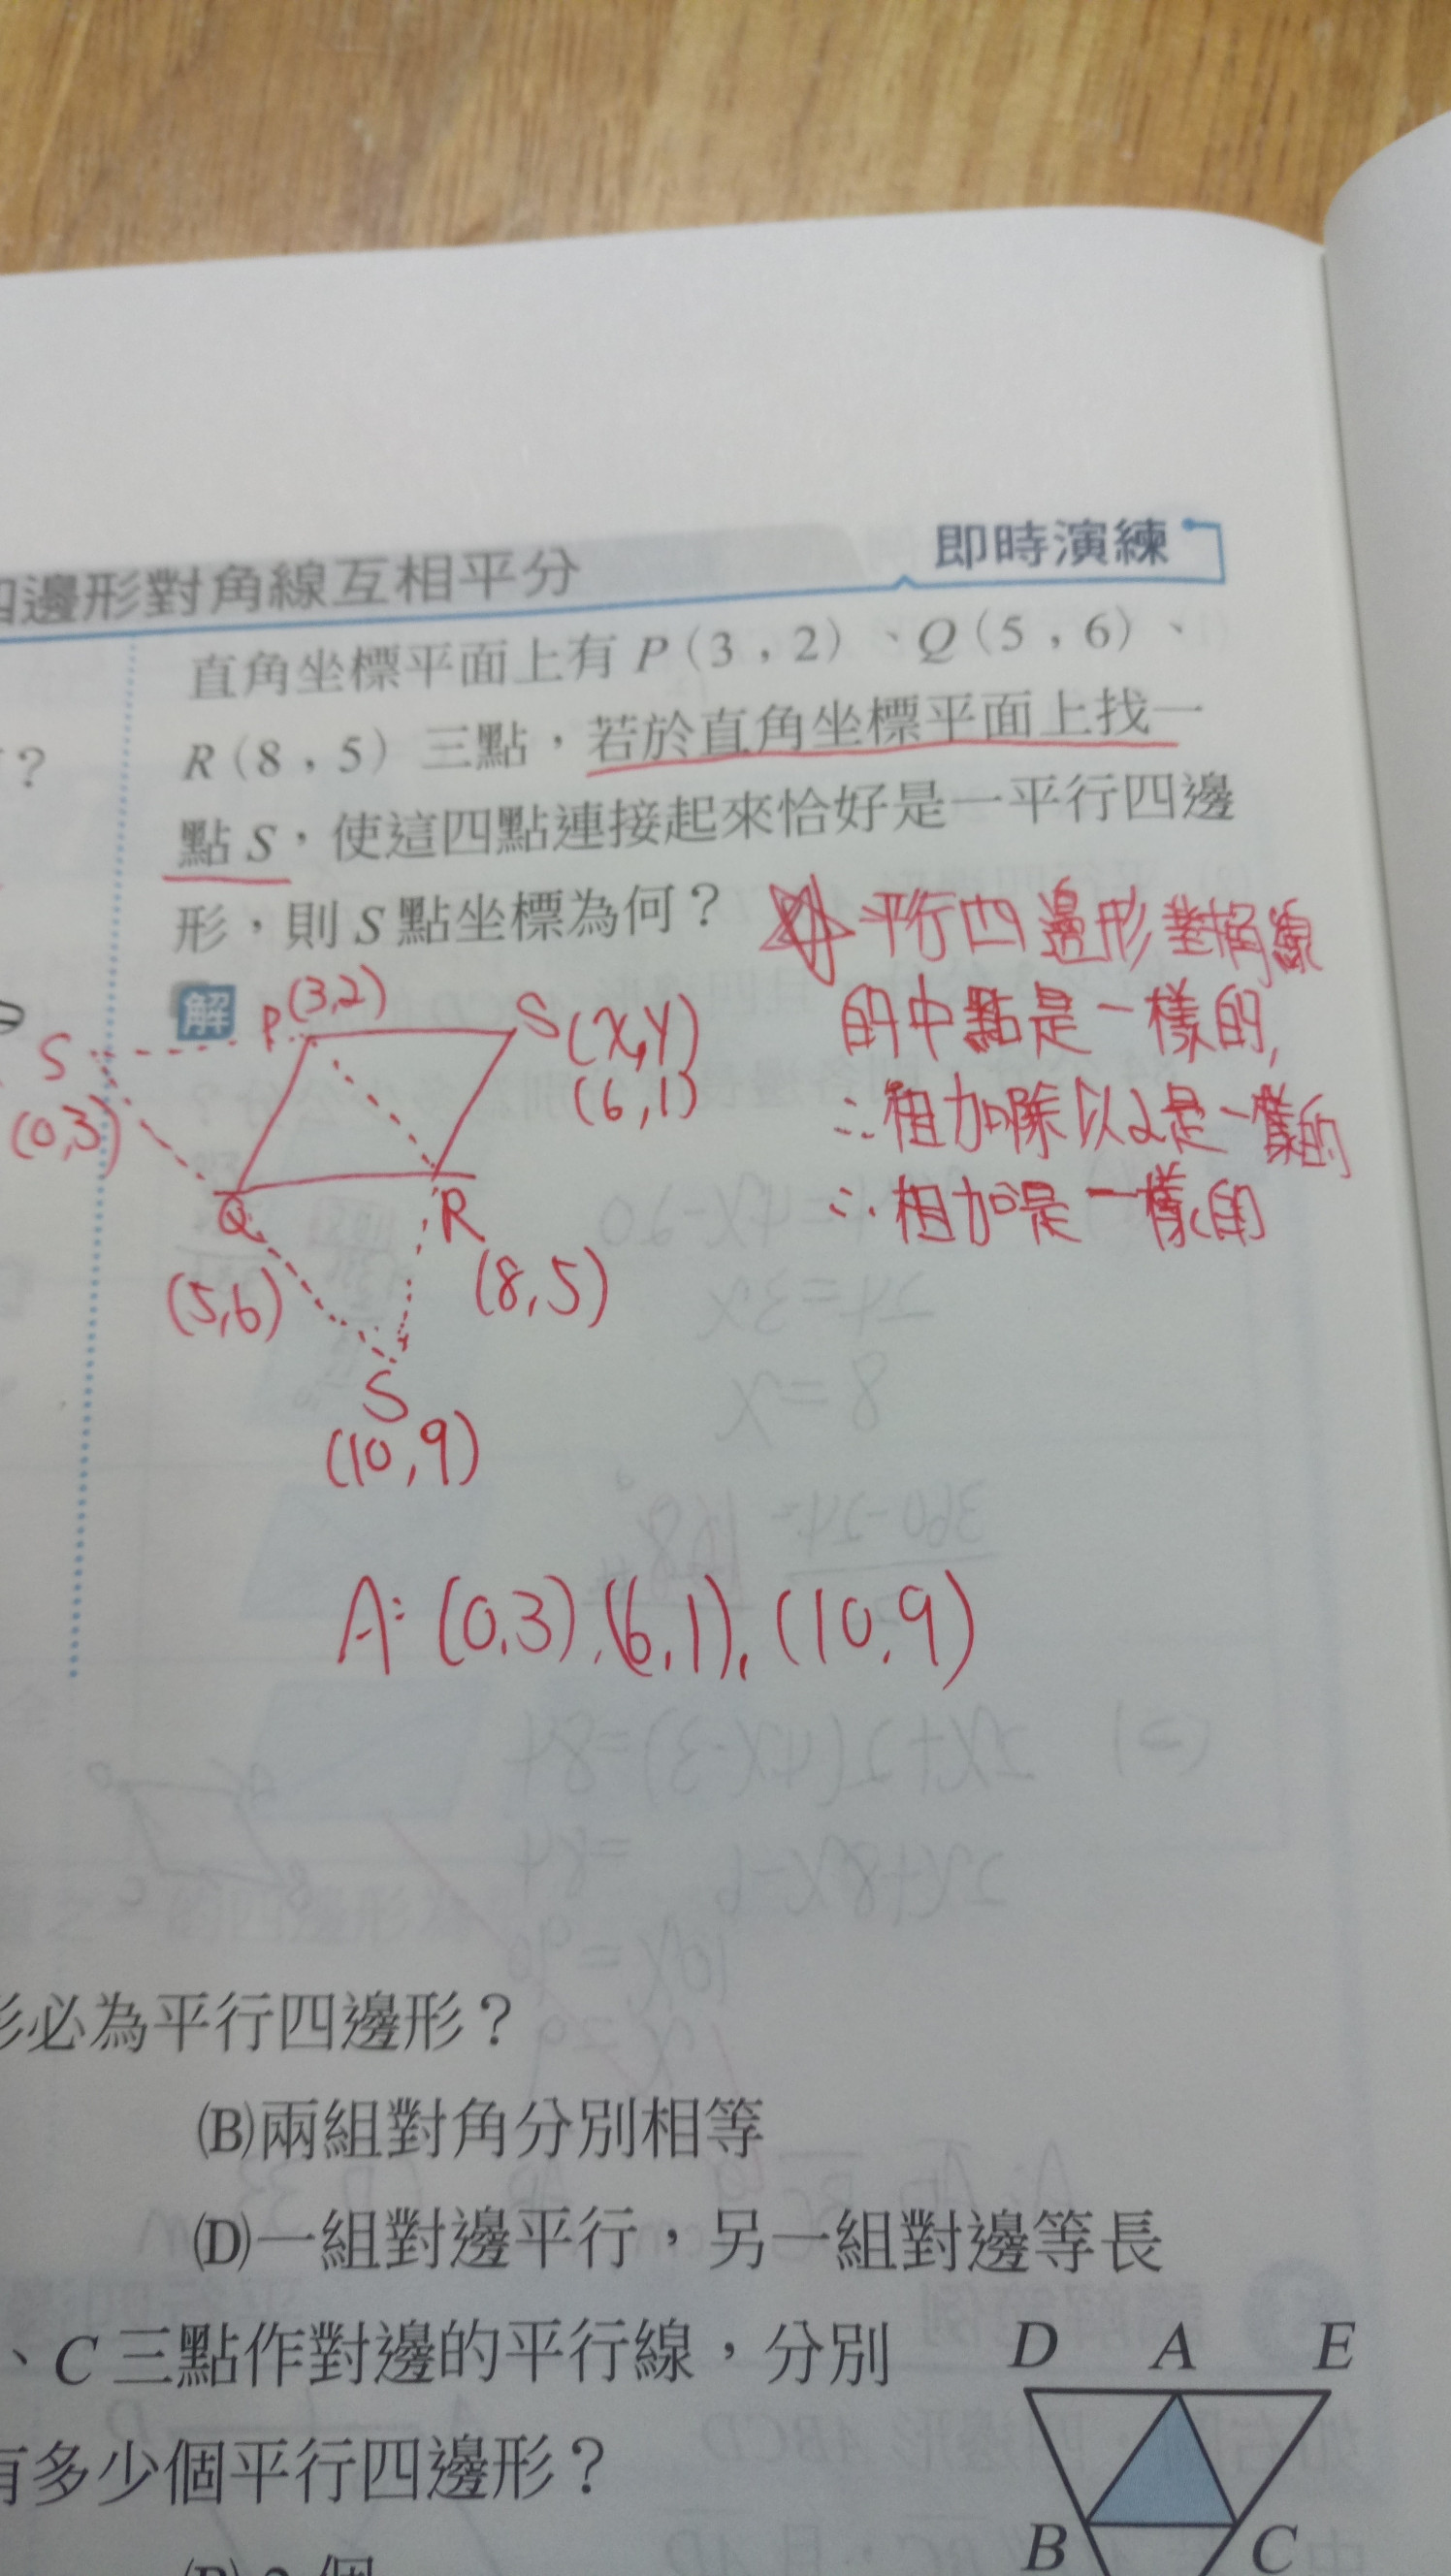 四邊形對角線互相平分
即時演練
直角坐標平面上有 P(3,2)、Q(5,6)、
?
R(8,5)三點,若於直角坐標平面上找一
點 S,使這四點連接起來恰好是一平行四邊
形,則 S 點坐標為何?
☆平行四邊形對角線
的中點是一樣的,
∴相加除以2是一樣的
∴相加是一樣的
解
P(3,2)
S(X,Y)
(6,1)
S
(0,3)
Q
R
(5,6)
(8,5)
S
(10,9)
A:(0,3),(6,1),(10,9)
形必為平行四邊形?
(B)兩組對角分別相等
(D)一組對邊平行,另一組對邊等長
、C 三點作對邊的平行線,分別
有多少個平行四邊形?
D A E
B C